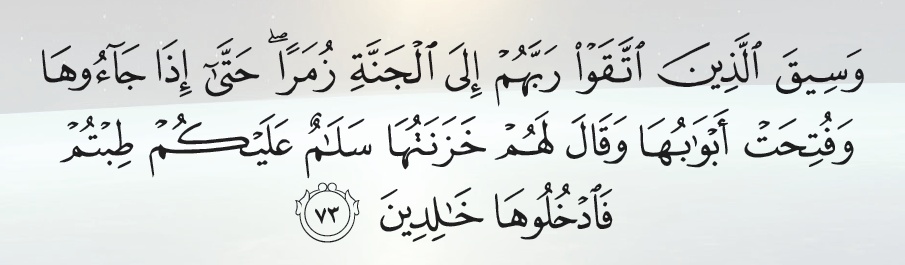 وَسِيقَ ٱلَّذِينَ ٱتَّقَوْا۟ رَبَّهُمْ إِلَى ٱلْجَنَّةِ زُمَرًا ۖ حَتَّىٰٓ إِذَا جَآءُوهَا
وَفُتِحَتْ أَبْوَٰبُهَا وَقَالَ لَهُمْ خَزَنَتُهَا سَلَـٰمٌ عَلَيْكُمْ طِبْتُمْ
فَٱدْخُلُوهَا خَـٰلِدِينَ ٧٣